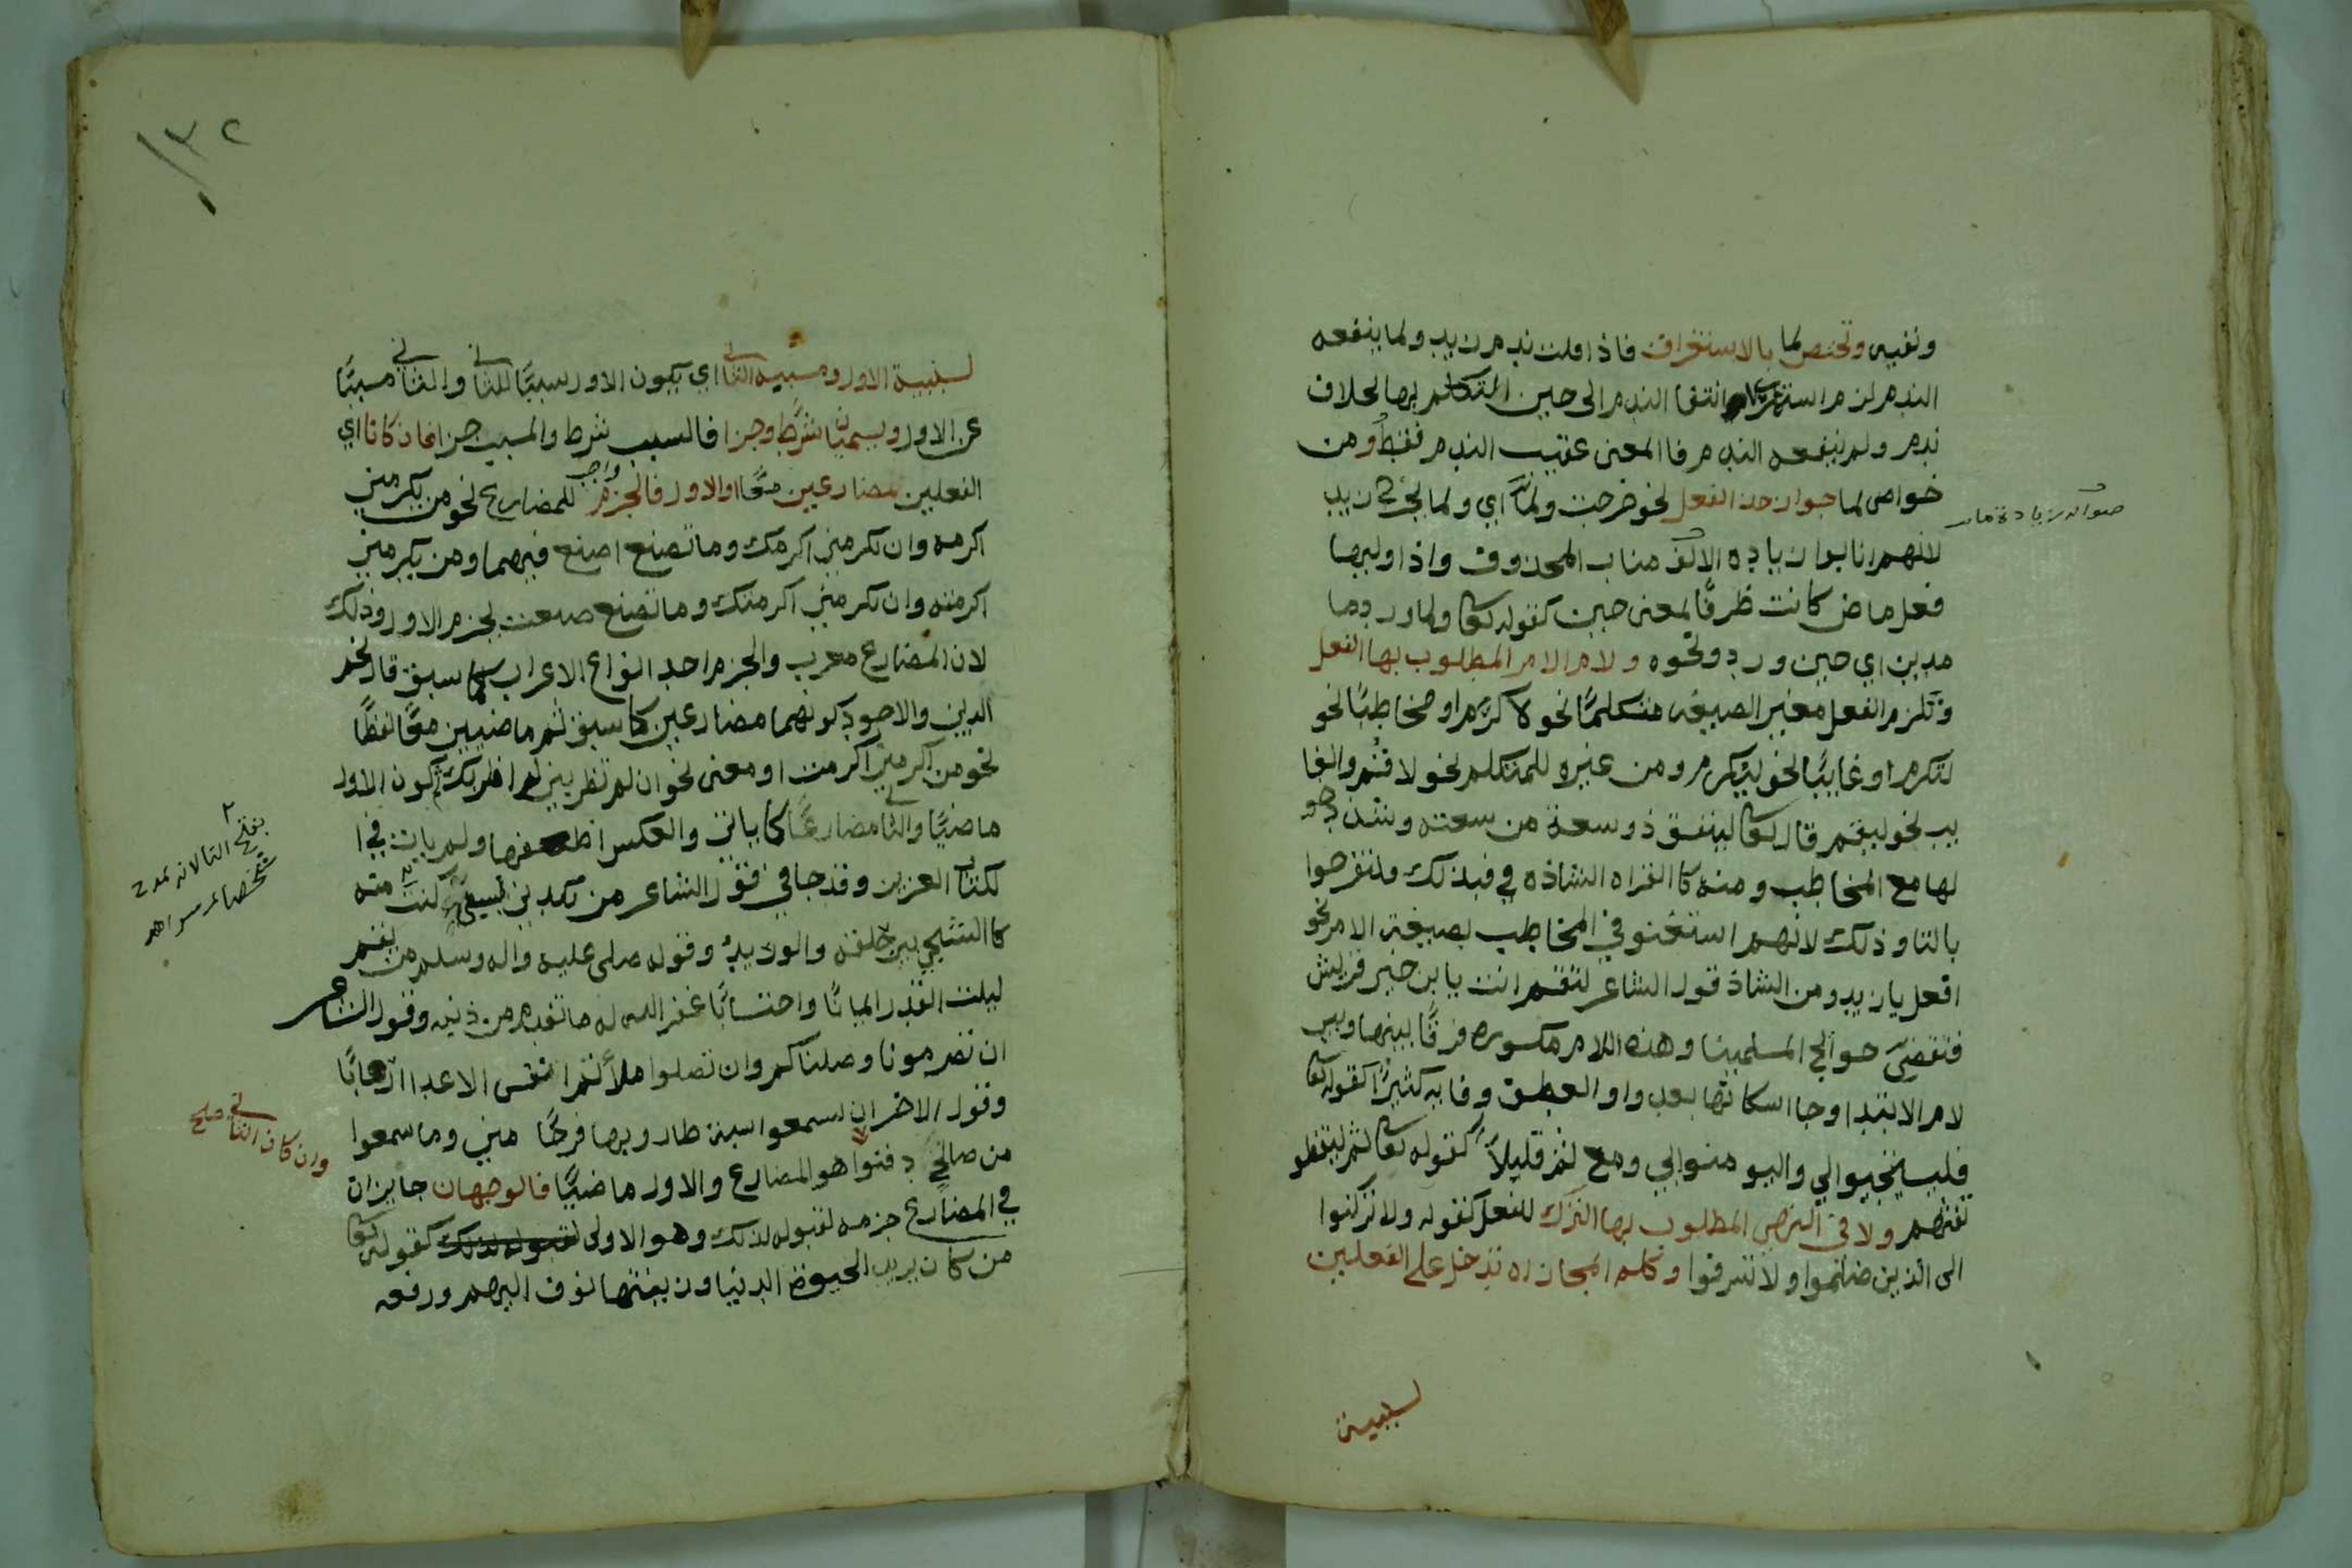 ونفيه وتختص لما بالاستغراق فاذا قلت ندم زيد ولما ينفعه
الندم لزم استغراق انتفا الندم الى حين التكلم بها بخلاف
ندم ولم ينفعه الندم فا المعنى عقيب الندم فقط ومن
خواص لما جواز حذف الفعل نحو خرجت ولما اي ولما يخرج زيد
لانهم انابوا زياده الالف مناب المحذوف واذا وليها
فعل ماض كانت ظرفًا لمعنى حين كقوله تعا ولما ورد ما
مدين اي حين ورد ونحوه ولام الامر المطلوب بها الفعل
وتلزم الفعل مغير الصيغه متكلمًا نحو لاكرم او مخاطبًا نحو
لتكرم او غايبًا نحو ليكرم ومن غيره للمتكلم نحو لاقم والغا
يب نحو ليقم قال تعا لينفق ذو سعة من سعته وشذ دخو
لها مع المخاطب ومنه كا القراه الشاذه في فبذلك فلتفرحوا
بالتا وذلك لانهم استغنو في المخاطب بصيغة الامر نحو
افعل يا زيد ومن الشاذ قول الشاعر لتقم انت يا بن خير قريش
فتقضي حوالج المسلمينا وهذه اللام مكسوره فرقًا بينها وبين
لام الابتدا وجا اسكانها بعد واو العطف وفايه كثيرًا كقوله تعا
فليستجيبوالي واليومنوابي ومع ثم قليلاً كقوله تعا ثم ليقضو
تفثهم ولا في النهي المطلوب بها الترك للفعل كقوله ولا تركنوا
الى الذين ضلموا ولا تسرفوا وكلم المجازاه تدخل على الفعلين
لسببية
لسببية الاول ومسببيه الثاني اي يكون الاول سببًا للثاني والثاني مسببًا
عن الاول ويسميان شرط وجزا فالسبب شرط والمسبب جزا فاذ كانا اي
الفعلين مضارعين معًا او الاول فالجزم واجب للمضارع نحو من يكرمني
اكرمه وان تكرمني اكرمك وما تصنع اصنع فيهما ومن يكرمني
اكرمته وان تكرمني اكرمتك وما تصنع صنعت بجزم الاول وذلك
لان المضارع معرب والجزم احد انواع الاعراب كما سبق قال نجم
الدين والاجود كونهما مضارعين كا سبق ثم ماضيين معًا لفظًا
نحو من اكرمني اكرمت او معنى نحو ان لم تضربني لم اضربك ثم كون الاول
ماضيًا والثاني مضارعًا كا ياتي والعكس اضعفها ولم يات في ا
لكتاب العزيز وقد جا في قول الشاعر من يكدني بسيئ كنت منه
كا الشجي بين حلقه والوريد وقوله صلى عليه واله وسلم من يقم
ليلت القدر ايمانًا واحتسابًا غفر الله له ما تقدم من ذنبه وقول الشاعر
ان تصرمونا وصلناكم وان تصلوا ملأتم انفس الاعدا ارهابًا
وقول الاخر ان يسمعوا سبة طاروبها فرحًا مني وما سمعوا
من صالح دفنوا هو المضارع والاول ماضيًا فالوجهان جايزان
في المضارع جزمه لقبوله لذلك وهو الاولى كقوله تعا
من كان يريد الحيوة الدنيا وزينتها نوف اليهم ورفعه
وان كان الثاني صح